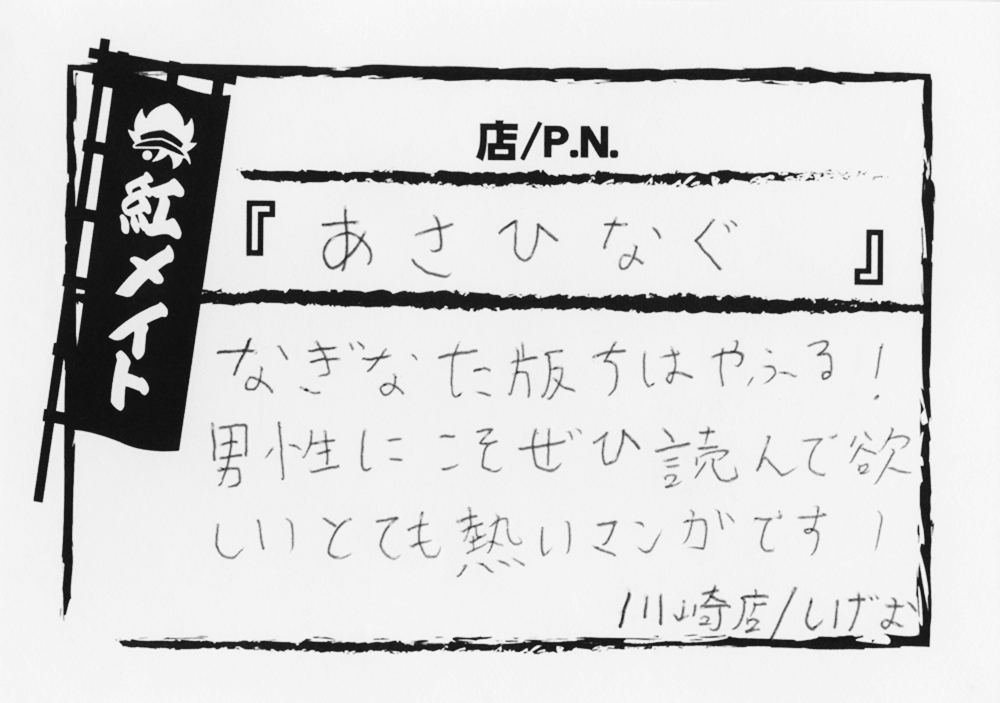 紅メイト
店/P.N.
『あさひなぐ』
なぎなた版ちはやふる!
男性にこそぜひ読んで欲
しいとても熱いマンガです!
川崎店/しげお